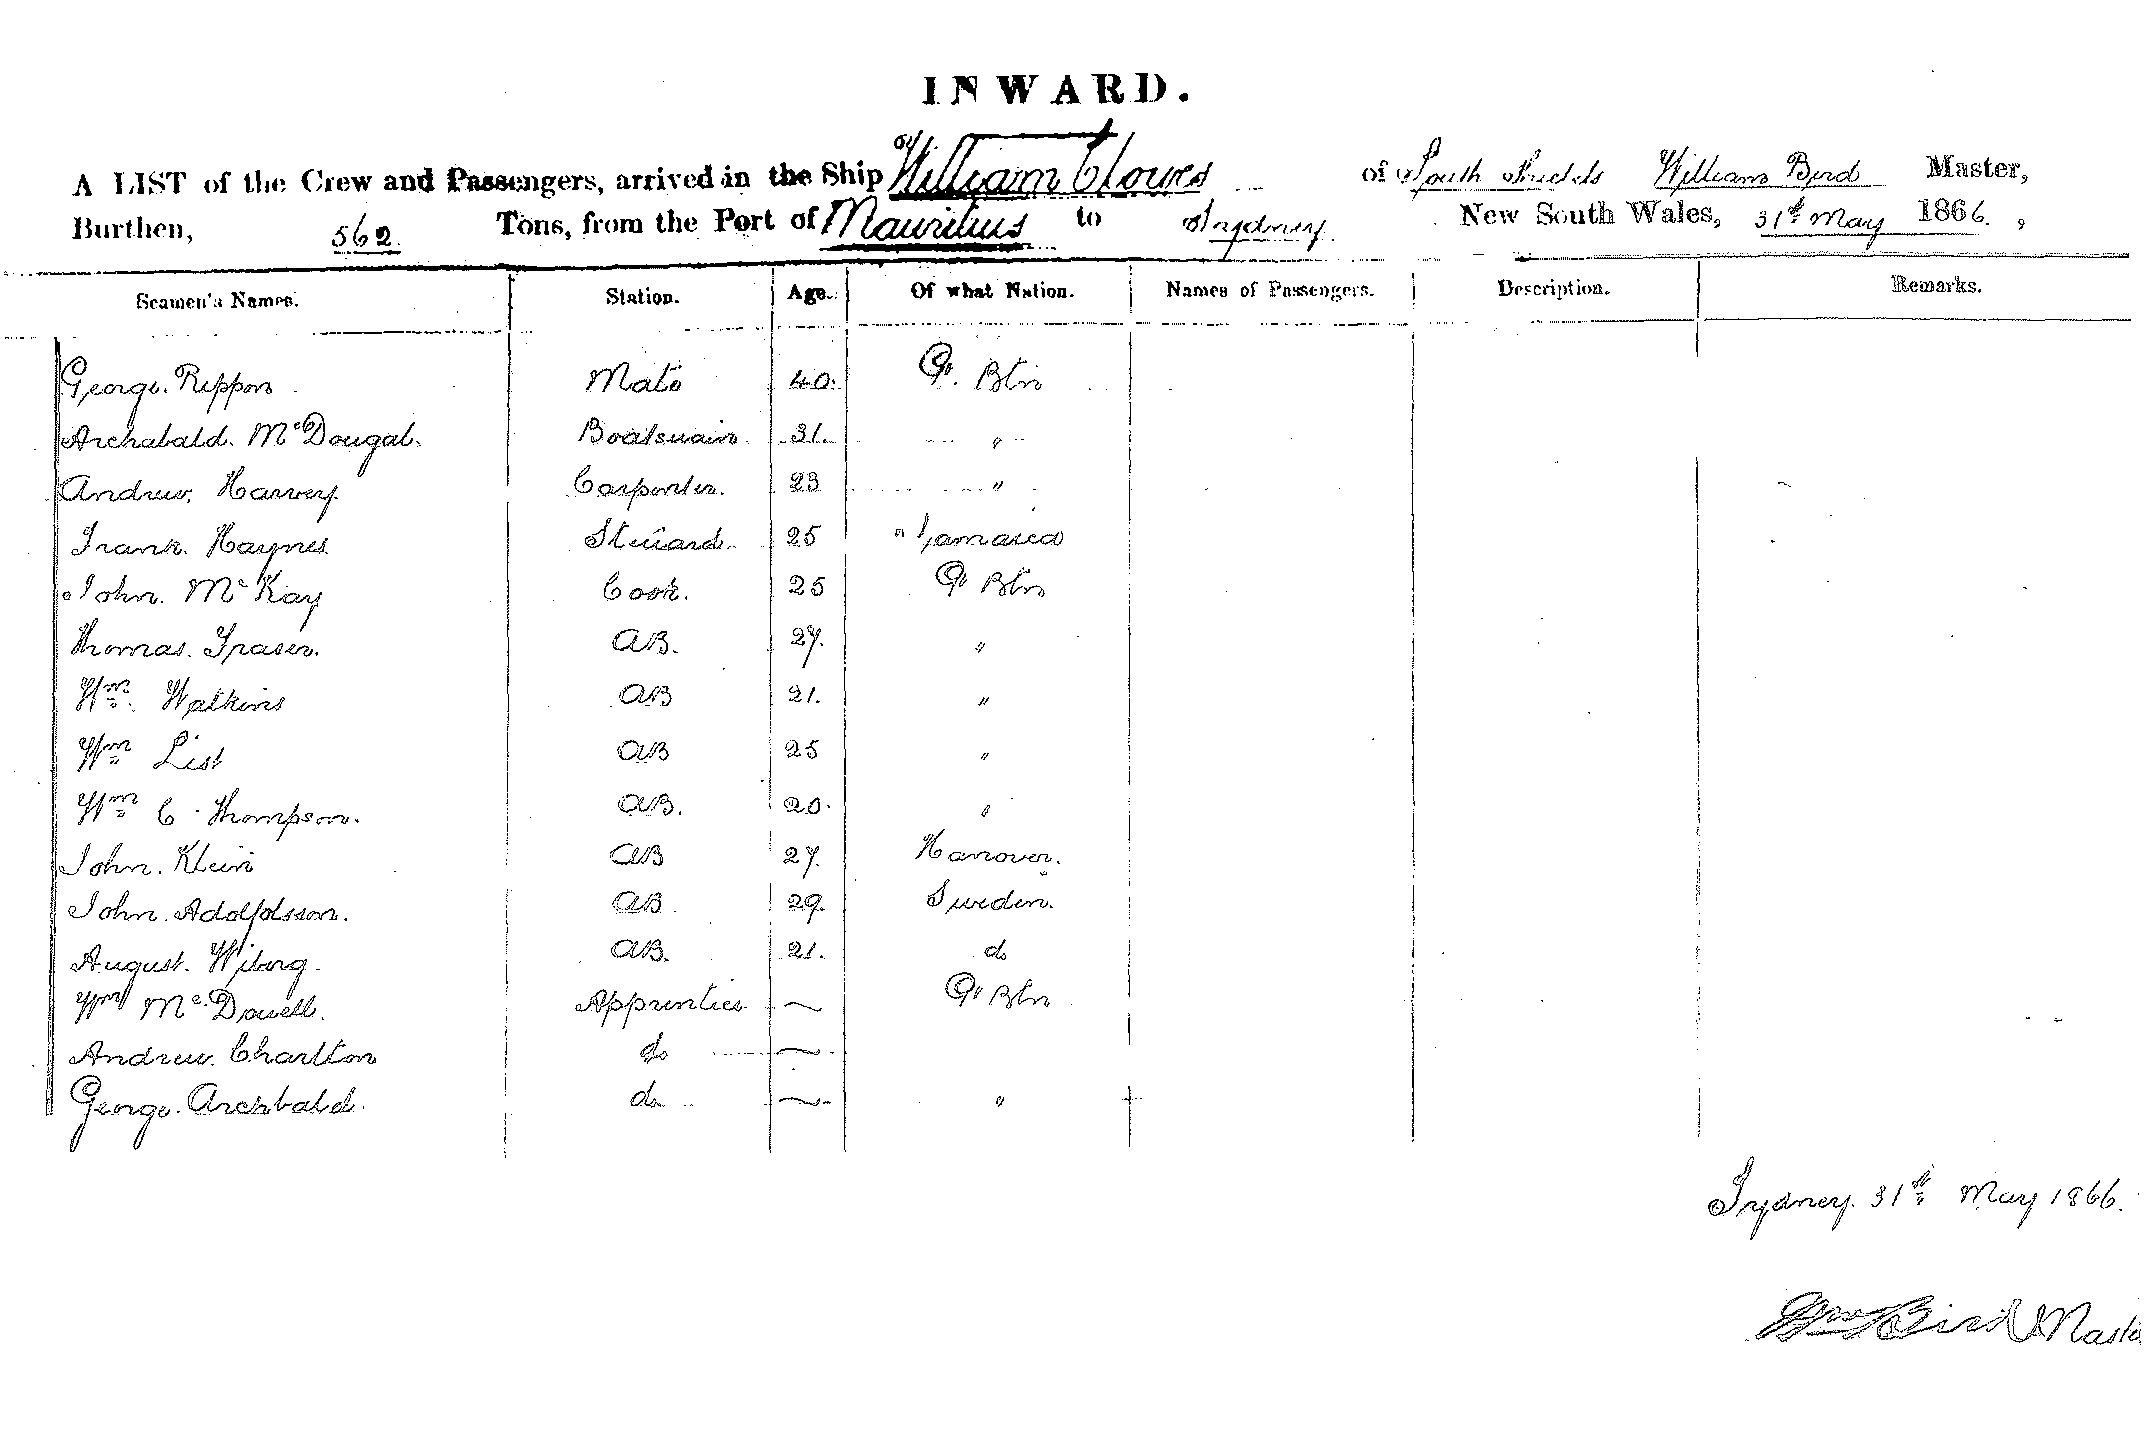 INWARD.
A LIST of the Crew and Passengers, arrived in the Ship William Clowes of South Shields William Bird Master,
Burthen, 562 Tons, from the Port of Mauritius to Sydney New South Wales, 31st May 1866.,
Seamen's Names. Station. Age. Of what Nation. Names of Passengers. Description. Remarks.
George. Rippon Mate 40. Gt. Btn
Archabald. McDougal. Boatswain. 31. "
Andrew. Harvey Carpenter. 23 "
Frank. Haynes Steward. 25 " Jamaica
John. McKay Cook. 25 Gt Btn
Thomas. Fraser. AB. 27. "
Wm. Watkins AB 21. "
Wm List AB 25 "
Wm C Thompson. AB. 20. "
John. Klein AB 27. Hanover.
John. Adolphsson. AB. 29. Sweden.
August. Wiborg. AB. 21. do
Wm McDowell. Apprentice ~ Gt Btn
Andrew. Charlton do ~
George. Archbald. do ~ "
Sydney. 31st May 1866.
Wm Bird Master